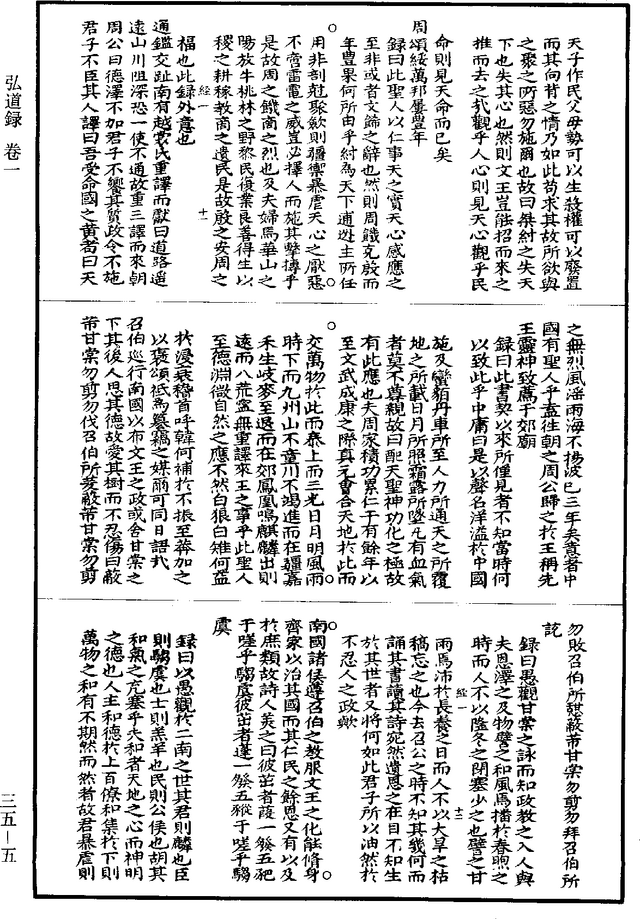 弘道録 卷一
三五―五
天子作民父母勢可以生殺權可以廢置
而其向背之情乃如此苟求其故所欲與
之聚之所惡勿施爾也故曰桀紂之失天
下也失其心也然則文王豈能招而來之
推而去之哉觀乎人心則見天心觀乎民
命則見天命而已矣
周頌綏萬邦屢豐年
録曰此聖人以仁事天之實天心感應之
至非或者文飾之辭也然則周饑克殷而
年豊果何所由乎紂為天下逋逃主所任
用非剖剋聚歛則彊禦暴虐天心之厭惡
不啻雷電之威豈必擇人而施其擊搏乎
是故周之饑商之烈也及夫婦馬華山之
陽放牛桃林之野黎民復業良善得生以
稷之耕稼教商之遺民是故殷之安周之
經一
十一
福也此録外意也
通鑑交趾南有越裳氏重譯而獻曰道路遥
遠山川阻深恐一使不通故重三譯而來朝
周公曰德澤不加君子不饗其質政令不施
君子不臣其人譯曰吾受命國之黄耇曰天
之無烈風滛雨海不揚波已三年矣意者中
國有聖人乎盍往朝之周公歸之於王稱先
王靈神致薦于郊廟
録曰此書契以來所僅見者不知當時何
以致此乎中庸曰是以聲名洋溢於中國
施及蠻貊舟車所至人力所通天之所覆
地之所載日月所照霜露所墜凡有血氣
者莫不尊親故曰配天聖神功化之極故
有此應也夫周家積功累仁千有餘年以
至文武成康之際真元㑹合天地於此而
交萬物於此而泰上而三光日月明風雨
時下而九州山不童川不竭進而在疆嘉
禾生岐麥至退而在郊鳳凰鳴麒麟出則
遠而八荒盖無重譯來王之事乎此聖人
至德淵微自然之應不然白狼白雉何益
於漫衰稽首呼韓何補於不振至莽加之
以褒頌秪為篡竊之媒爾可同日語哉
召伯巡行南國以布文王之政或舍甘棠之
下其後人思其德故愛其樹而不忍傷曰蔽
芾甘棠勿剪勿伐召伯所茇蔽芾甘棠勿剪
勿敗召伯所憇蔽芾甘棠勿剪勿拜召伯所
說
録曰愚觀甘棠之詠而知政教之入人與
夫恩澤之及物譬之和風焉播於春煦之
時而人不以隆冬之閉塞少之也譬之甘
經一
十二
雨焉沛於長養之日而人不以大旱之枯
稿忘之也今去召公之時不知其幾何而
誦其書讀其詩宛然遺思之在目不知生
於其世者又將何如此君子所以油然於
不忍人之政歟
南國諸侯遵召伯之教服文王之化能脩身
齊家以治其國而其仁民之餘恩又有以及
於庶類故詩人美之曰彼茁者葭一發五豝
于嗟乎騶虞彼茁者蓬一發五豵于嗟乎騶
虞
録曰以愚觀於二南之世其君則麟也臣
則騶虞也士則羔羊也民則公侯也胡其
和氣之充塞乎夫和者天地之心而神明
之德也人主和德於上百僚和集於下則
萬物之和有不期然而然者故君暴虐則